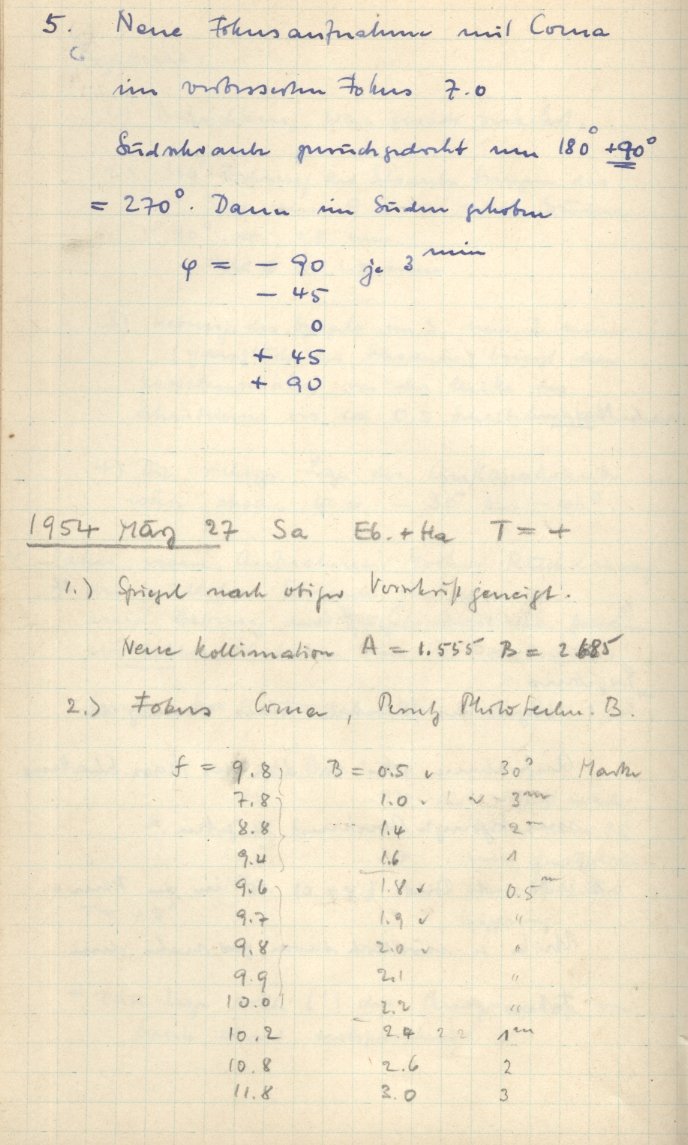 5. Neue Fokusaufnahme mit Coma
im verbesserten Fokus 7.0
Südschraube zurückgedreht um 180° +90°
= 270°. Dann im Süden gehoben
φ = - 90 je 3 min
- 45
0
+ 45
+ 90
1954 März 27 Sa Eb. + Ha T = +
1.) Spiegel nach obiger Vorschrift geneigt.
Neue Kollimation A = 1.555 B = 2685
2.) Fokus Coma, Perutz Phototechn. B.
f = 9.8 B = 0.5 ✓ 30s Marke
7.8 1.0 ✓ ✓ 3m
8.8 1.4 2m
9.4 1.6 1
9.6 1.8 ✓ 0.5m
9.7 1.9 ✓ "
9.8 2.0 ✓ "
9.9 2.1 "
10.0 2.2 "
10.2 2.4 2.2 1m
10.8 2.6 2
11.8 3.0 3